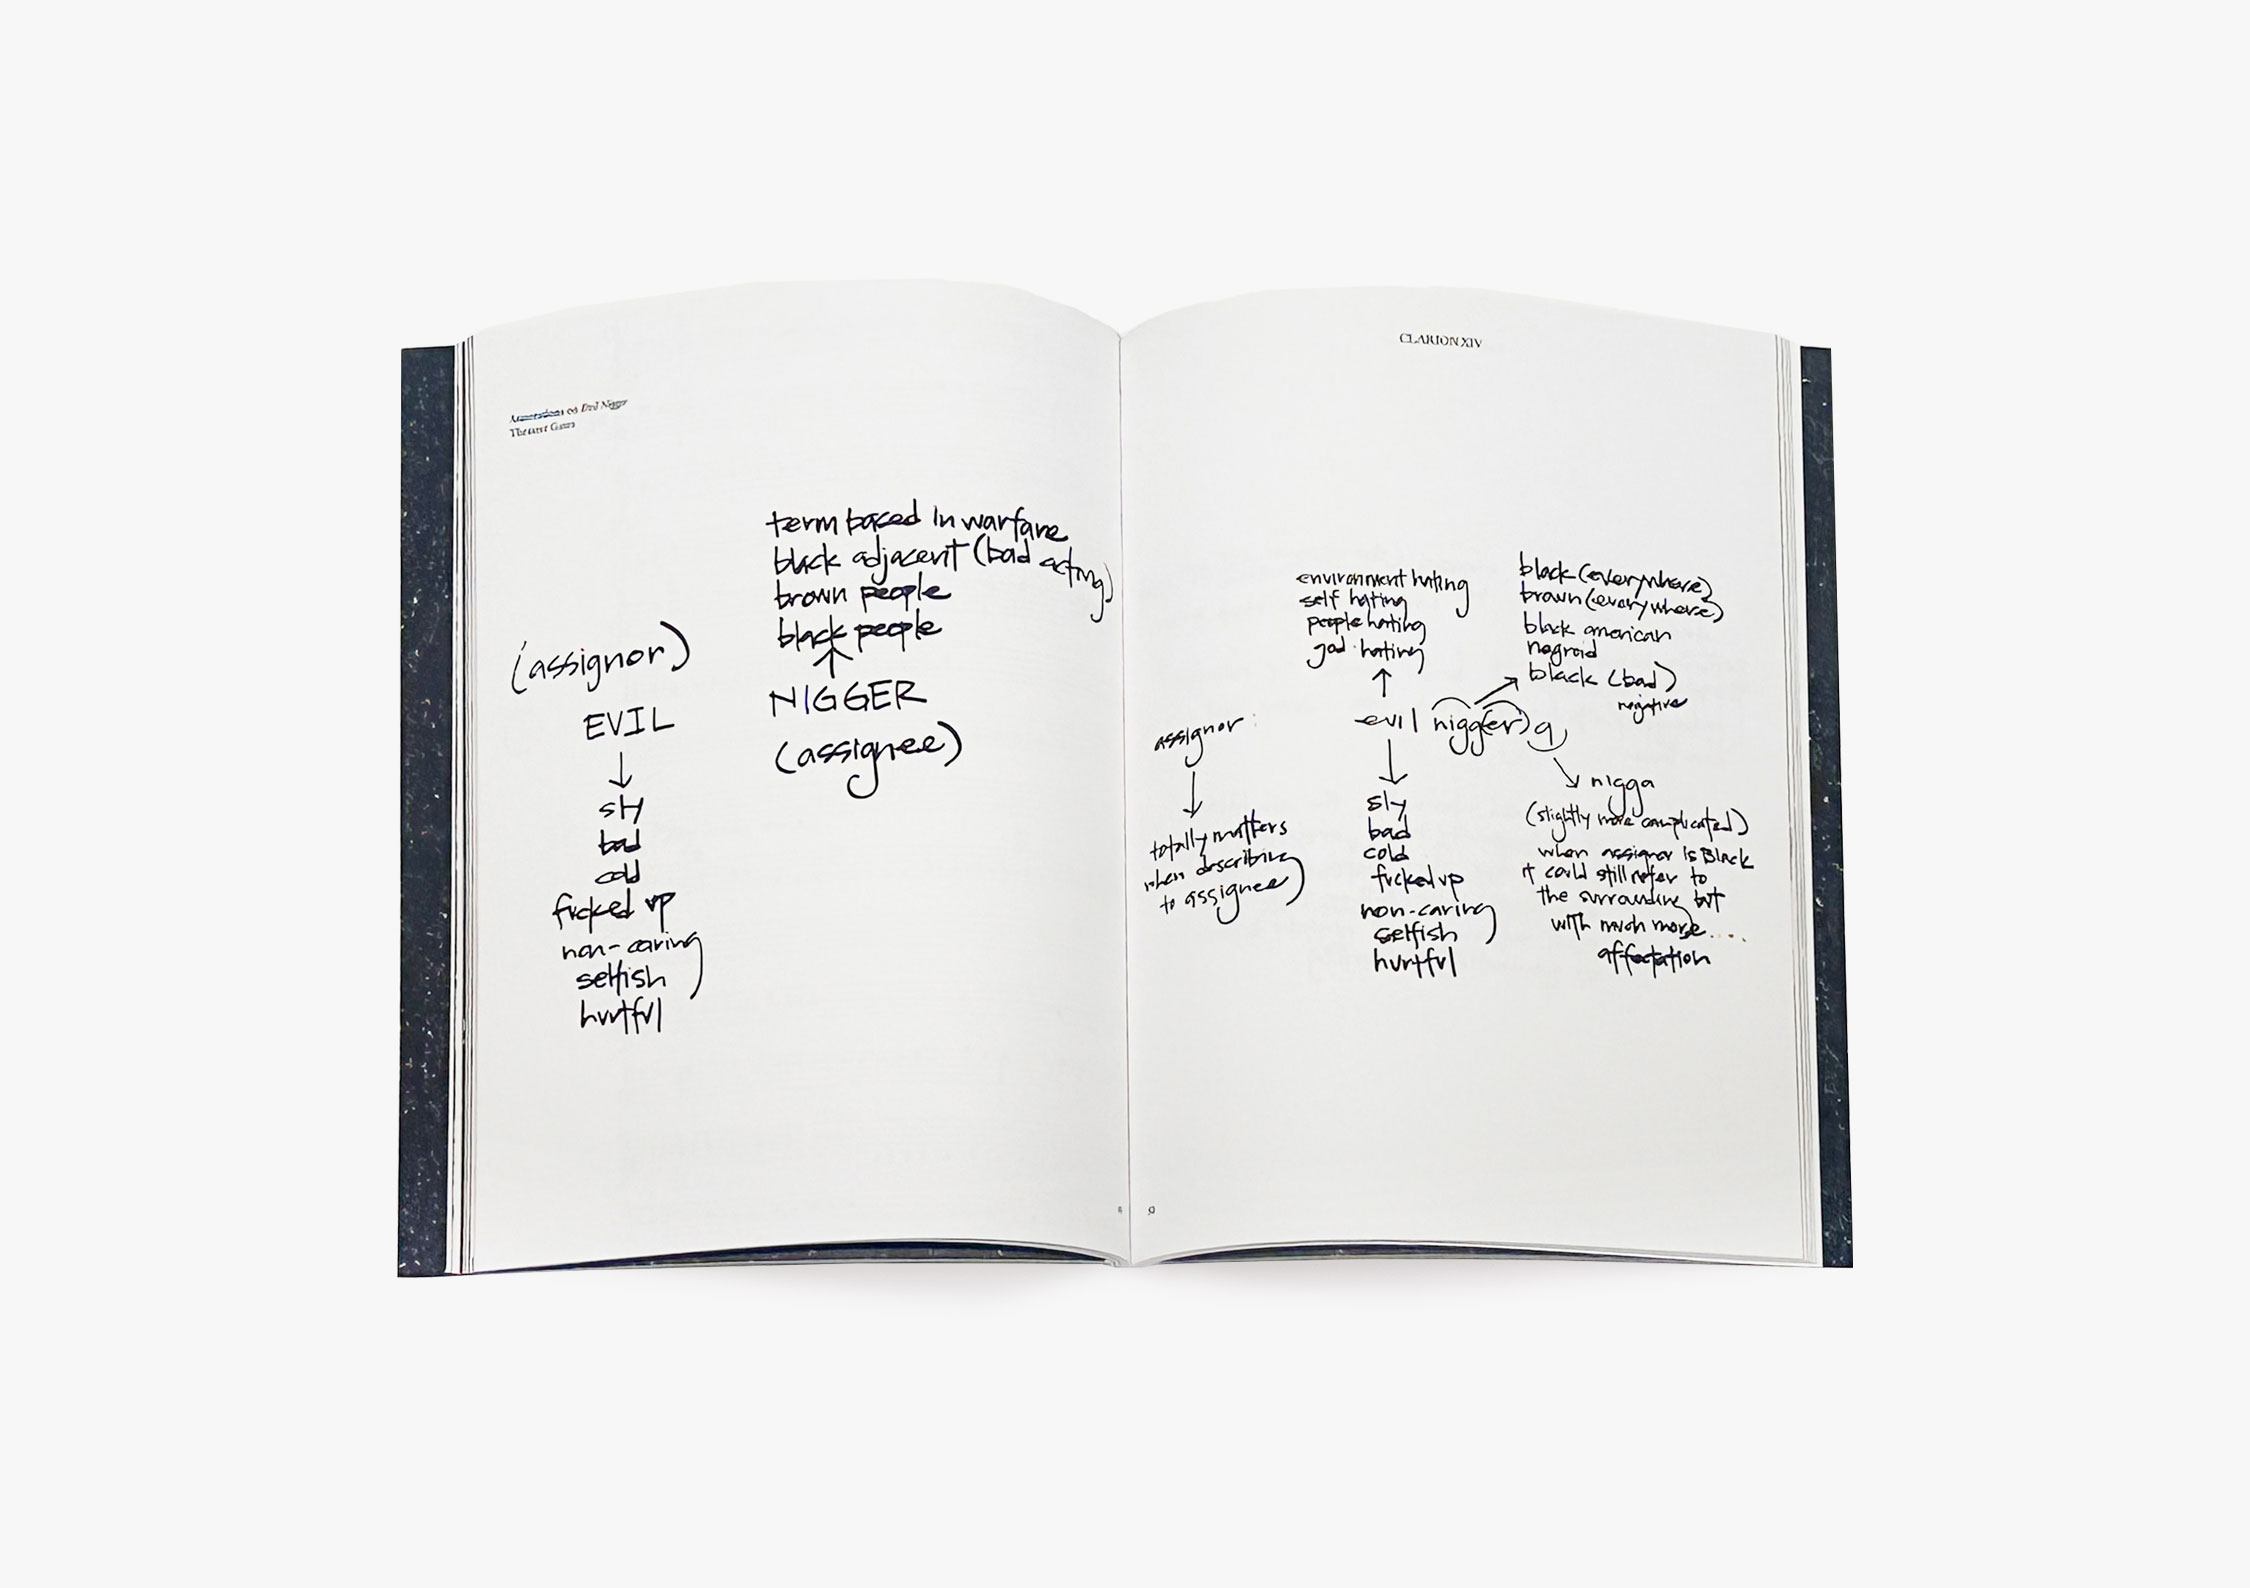 Annotations on Evil Nigger
Theaster Gates
(assignor)
EVIL
sly
bad
cold
fucked up
non-caring
selfish
hurtful
term based in warfare
black adjacent (bad acting)
brown people
black people
NIGGER
(assignee)
CLARION XIV
assignor:
totally matters
when describing
to assignee)
environment hating
self hating
people hating
god hating
evil nigg(er)a
sly
bad
cold
fucked up
non-caring
selfish
hurtful
black (everywhere)
brown (everywhere)
black american
negroid
black (bad)
negative
nigga
(slightly more complicated)
when assignor is Black
it could still refer to
the surrounding but
with much more....
affectation